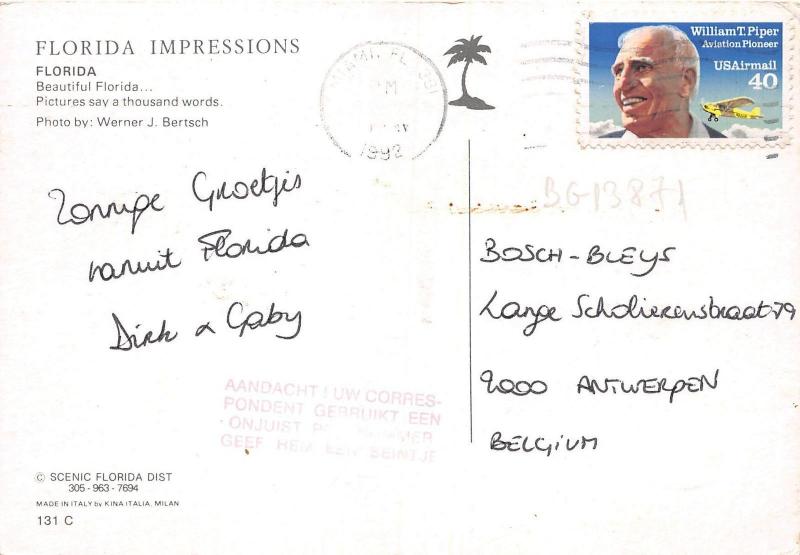 FLORIDA IMPRESSIONS
FLORIDA
Beautiful Florida...
Pictures say a thousand words.
Photo by: Werner J. Bertsch
MIAMI, FL 331
1992
William T. Piper
Aviation Pioneer
USAirmail
40
BG13871
Zonnige Groetjes
vanuit Florida
Dirk & Gaby
BOSCH - BLEYS
Lange Scholierenstraat 79
2000 ANTWERPEN
BELGIUM
AANDACHT! UW CORRES-
PONDENT GEBRUIKT EEN
ONJUIST
GEEF HEM EEN SEINTJE
© SCENIC FLORIDA DIST
305 - 963 - 7694
MADE IN ITALY by KINA ITALIA, MILAN
131 C